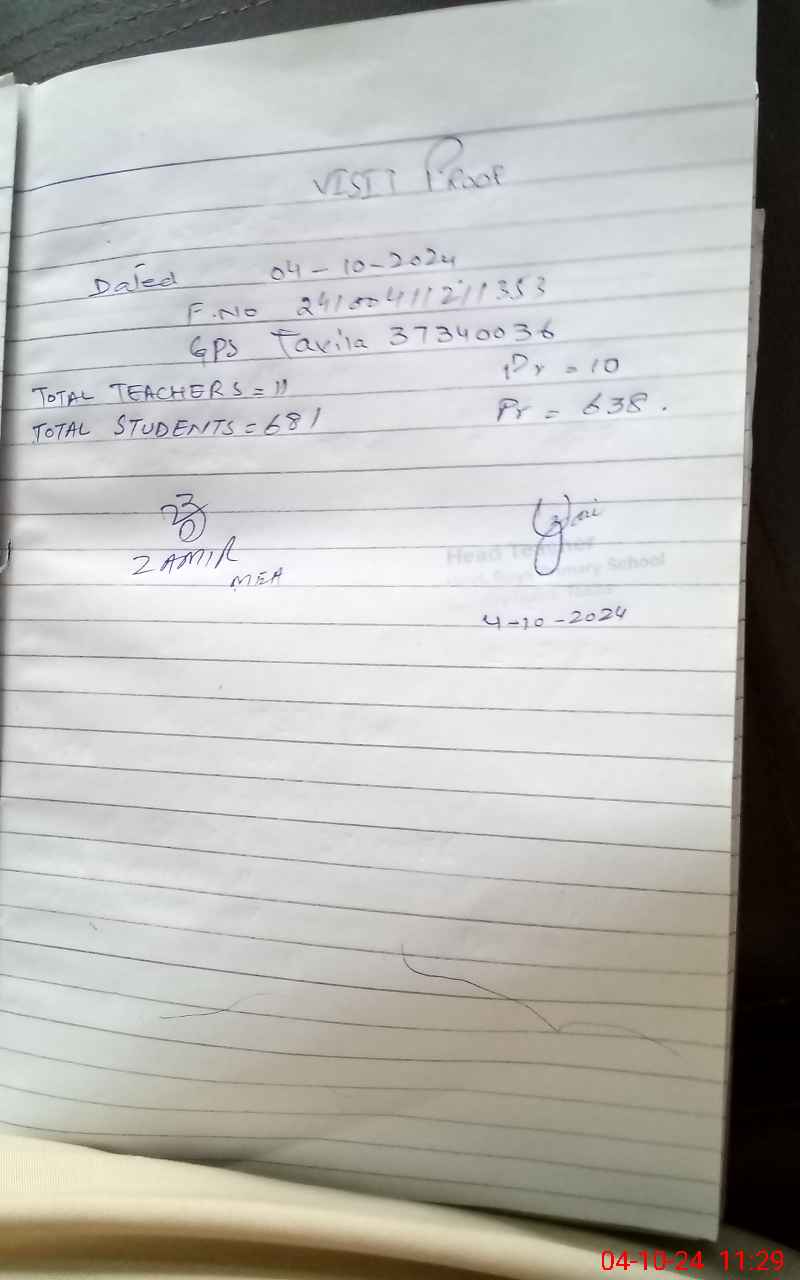 VISIT PROOF
Dated 04-10-2024
F.No 24100411211353
GPS Tavila 37340036
TOTAL TEACHERS = 11 Pr = 10
TOTAL STUDENTS = 681 Pr = 638.
ZAMIR
MEA
Head Teacher
Primary School
4-10-2024
04-10-24 11:29